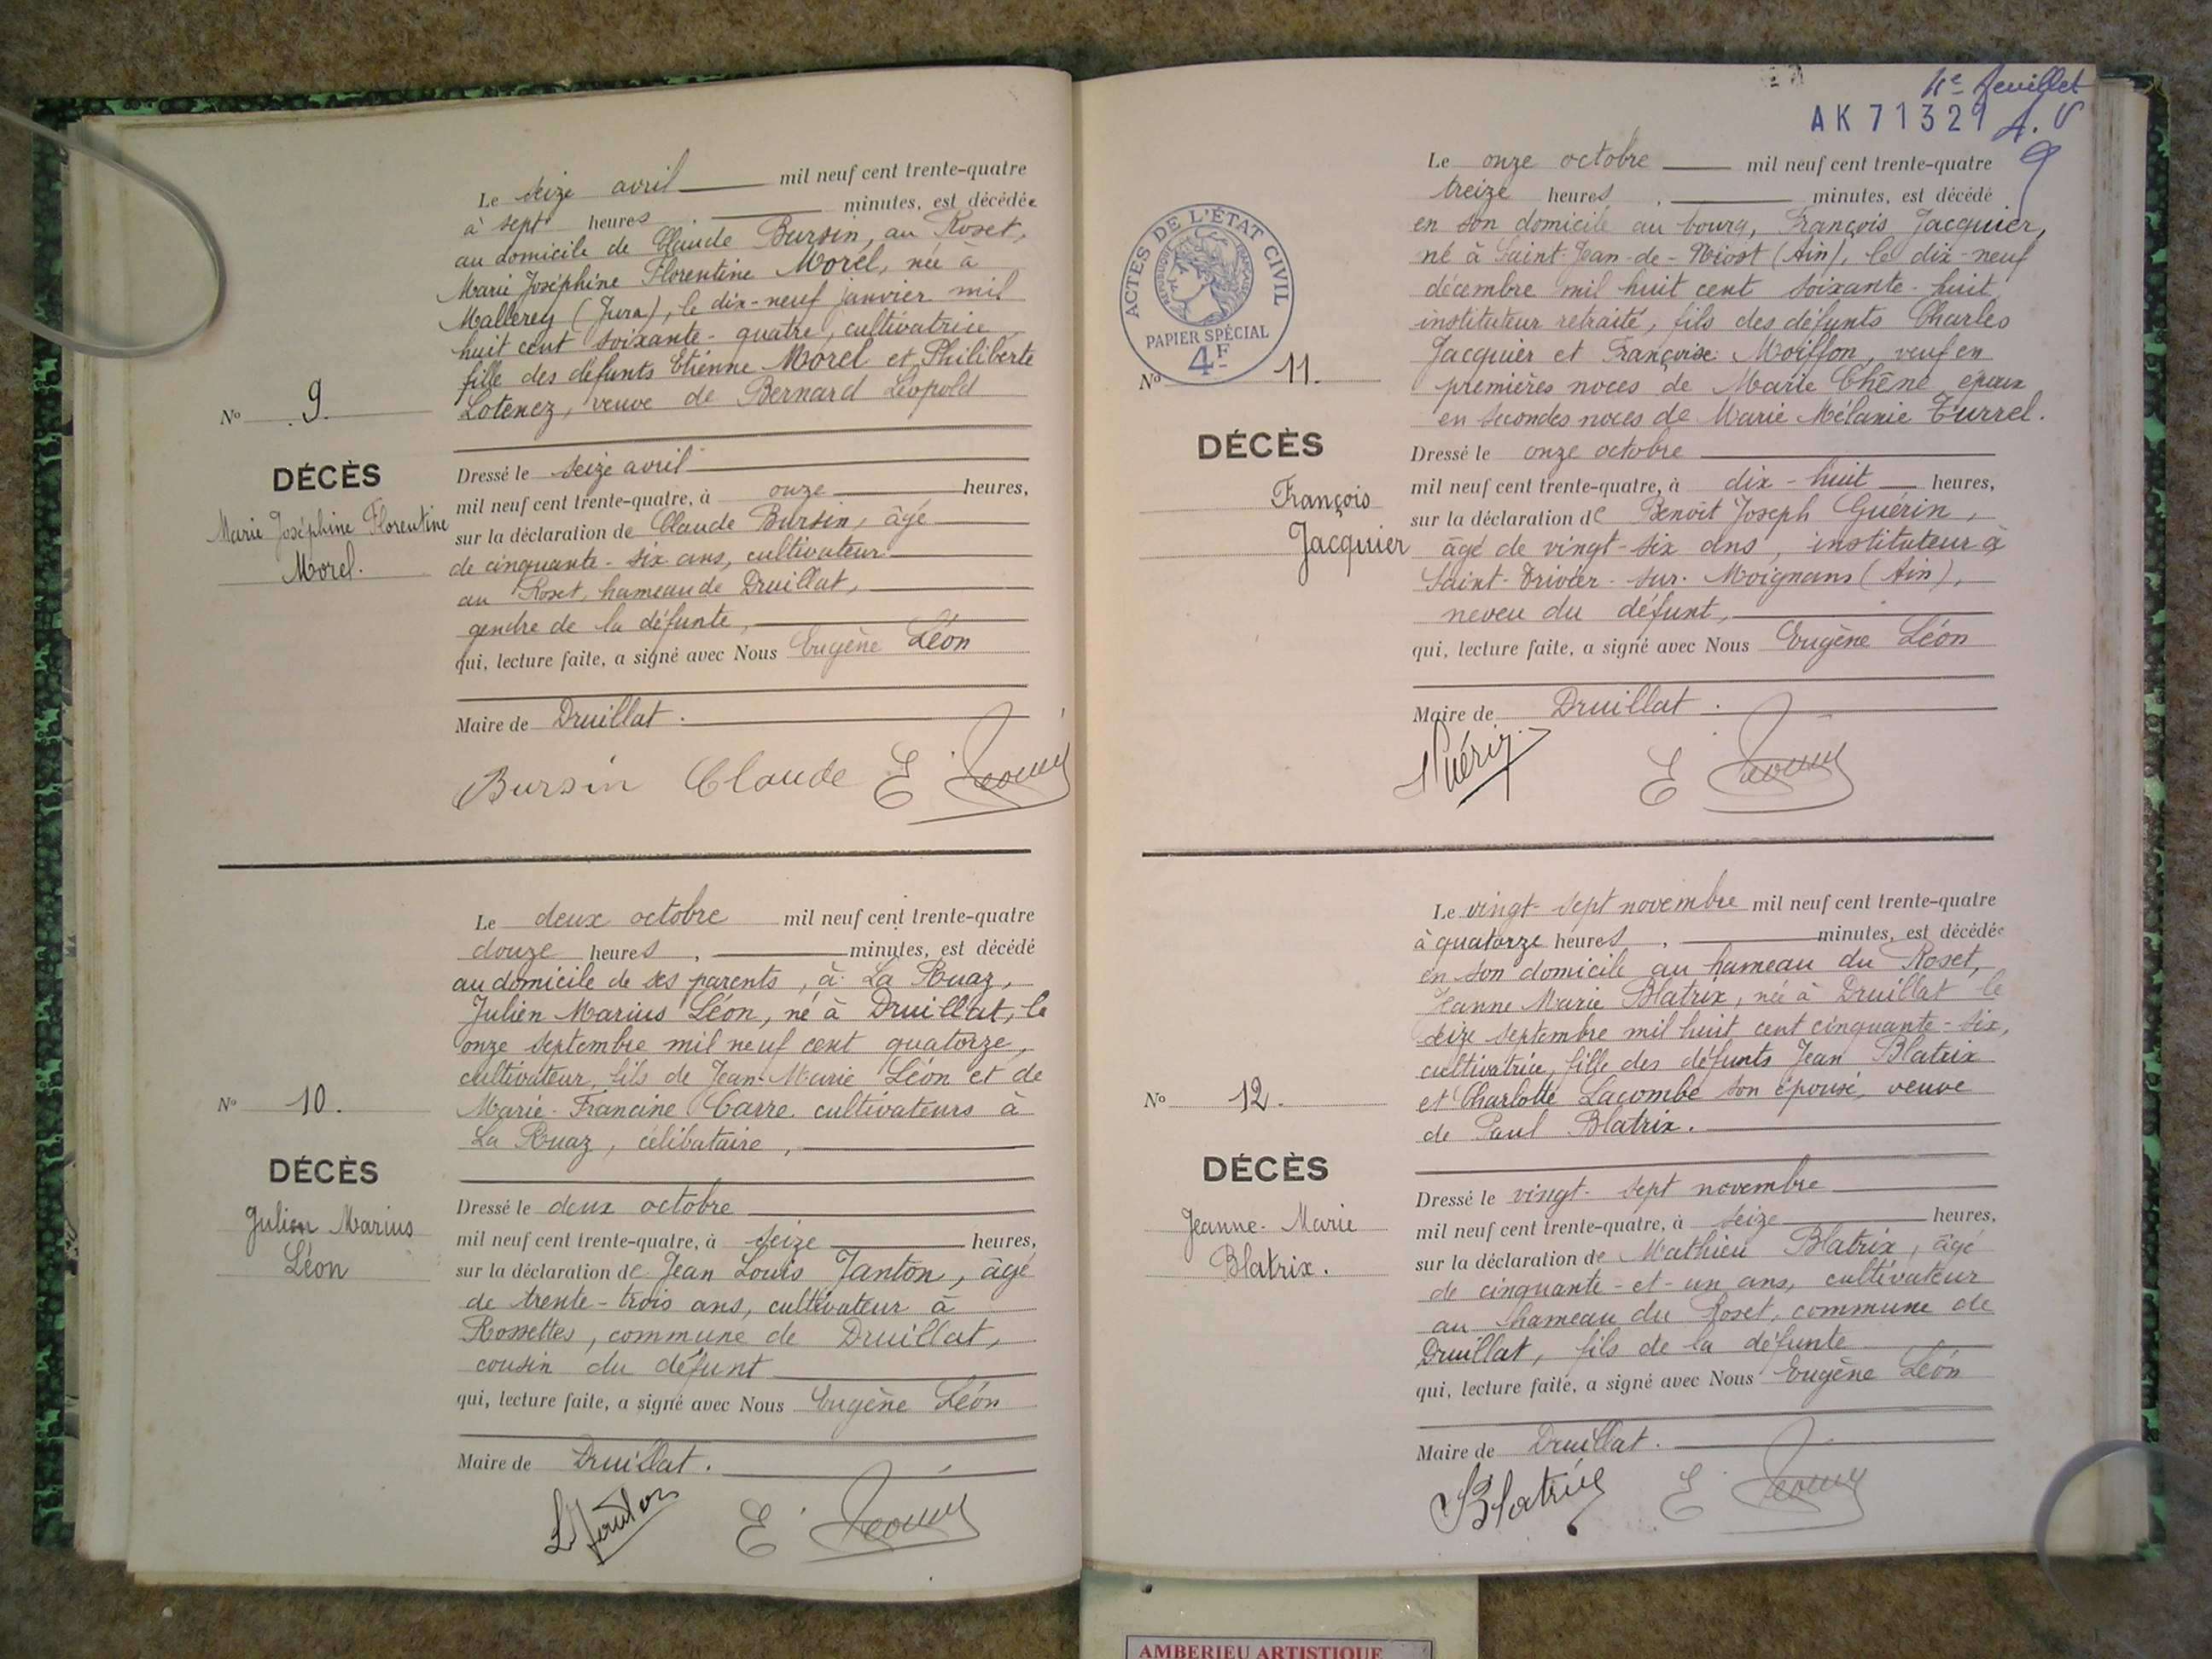 Le seize avril mil neuf cent trente-quatre
à sept heures , minutes, est décédée
au domicile de Claude Bursin, au Roset,
Marie Joséphine Florentine Morel, née à
Mallerey (Jura), le dix-neuf janvier mil
huit cent soixante-quatre, cultivatrice
fille des défunts Etienne Morel et Philiberte
Lotenez, veuve de Bernard Léopold
No 9.
DÉCÈS
Marie Joséphine Florentine
Morel.
Dressé le seize avril
mil neuf cent trente-quatre, à onze heures,
sur la déclaration de Claude Bursin, âgé
de cinquante-six ans, cultivateur
au Roset, hameau de Druillat,
gendre de la défunte,
qui, lecture faite, a signé avec Nous Eugène Léon
Maire de Druillat.
Bursin Claude E Léon
Le deux octobre mil neuf cent trente-quatre
douze heures , minutes, est décédé
au domicile de ses parents, à La Ruaz,
Julien Marius Léon, né à Druillat, le
onze septembre mil neuf cent quatorze,
cultivateur, fils de Jean-Marie Léon et de
Marie-Francine Carre cultivateurs à
La Ruaz, célibataire,
No 10.
DÉCÈS
Julien Marius
Léon
Dressé le deux octobre
mil neuf cent trente-quatre, à seize heures,
sur la déclaration de Jean Louis Janton, âgé
de trente-trois ans, cultivateur à
Rossettes, commune de Druillat,
cousin du défunt
qui, lecture faite, a signé avec Nous Eugène Léon
Maire de Druillat.
L Janton E Léon
feuillet
AK 71321
Le onze octobre mil neuf cent trente-quatre
treize heures , minutes, est décédé
en son domicile au bourg, François Jacquier,
né à Saint-Jean-de-Niost (Ain), le dix-neuf
décembre mil huit cent soixante-huit
instituteur retraité, fils des défunts Charles
Jacquier et Françoise Moiffon, veuf en
premières noces de Marie Chêne époux
en secondes noces de Marie Mélanie Turrel.
ACTES DE L'ÉTAT CIVIL
RÉPUBLIQUE FRANÇAISE
PAPIER SPÉCIAL
4F
No 11.
DÉCÈS
François
Jacquier
Dressé le onze octobre
mil neuf cent trente-quatre, à dix-huit heures,
sur la déclaration de Benoît Joseph Guérin,
âgé de vingt-six ans, instituteur à
Saint-Trivier-sur-Moignans (Ain),
neveu du défunt,
qui, lecture faite, a signé avec Nous Eugène Léon
Maire de Druillat.
Guérin E Léon
Le vingt-sept novembre mil neuf cent trente-quatre
à quatorze heures , minutes, est décédée
en son domicile au hameau du Roset,
Jeanne Marie Blatrix, née à Druillat le
seize septembre mil huit cent cinquante-six,
cultivatrice, fille des défunts Jean Blatrix
et Charlotte Lacombe son épouse, veuve
de Paul Blatrix.
No 12.
DÉCÈS
Jeanne-Marie
Blatrix.
Dressé le vingt-sept novembre
mil neuf cent trente-quatre, à seize heures,
sur la déclaration de Mathieu Blatrix, âgé
de cinquante-et-un ans, cultivateur
au hameau du Roset, commune de
Druillat, fils de la défunte
qui, lecture faite, a signé avec Nous Eugène Léon
Maire de Druillat.
Blatrix E Léon
AMBERIEU ARTISTIQUE